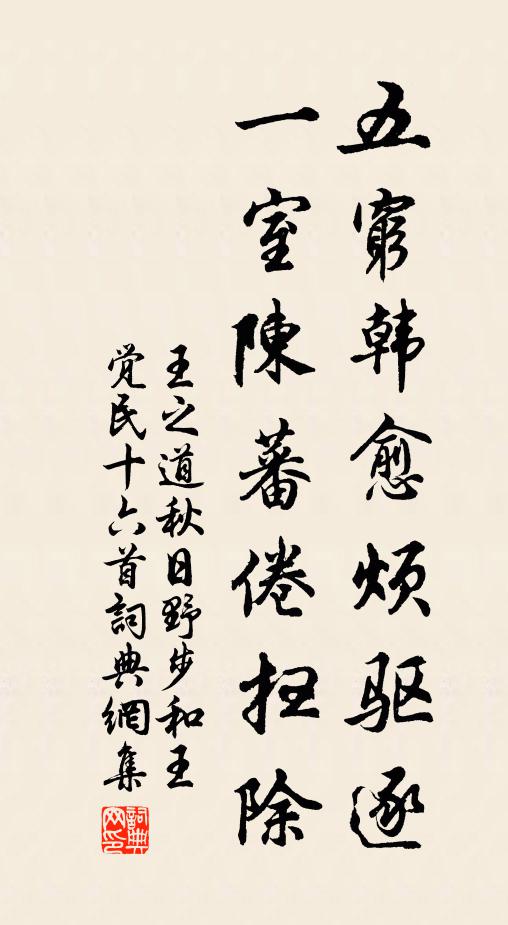 五窮韩愈烦驱逐
一室陳蕃倦扫除
王之道秋日野步和王
觉民十六首詞典網集
詞典网印